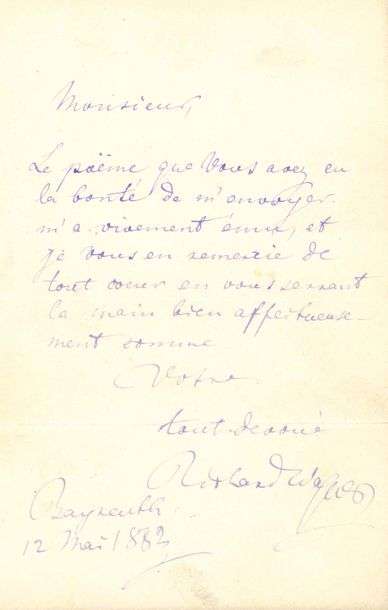 Monsieur,
Le poëme que Vous avez eu
la bonté de m'envoyer
m'a vivement ému, et
je vous en remercie de
tout coeur en vous serrant
la main bien affectueuse-
ment comme
Votre
tout dévoué
Richard Wagner
Bayreuth
12 Mai 1882